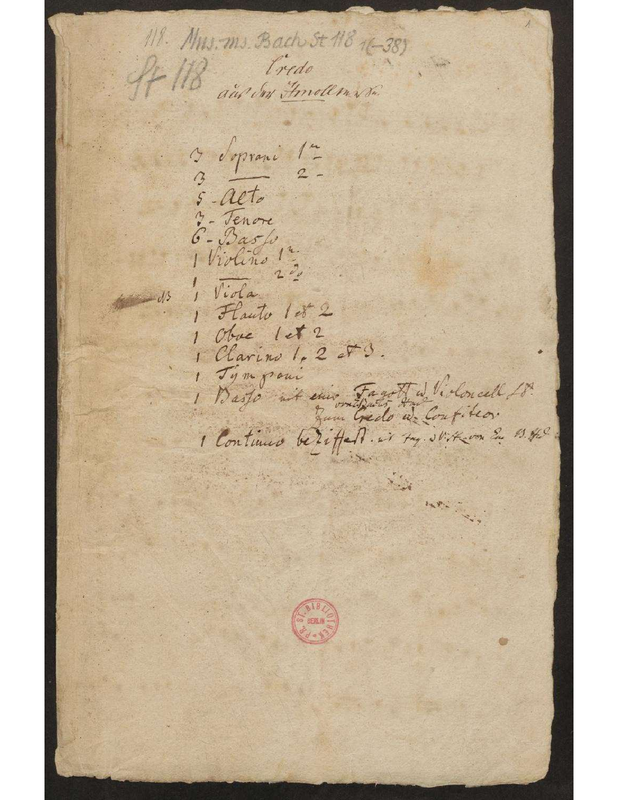 118. Mus. ms. Bach St 118 (1-38)
St 118
Credo
aus der Hmoll
3 Soprani 1
3 — 2
5 - Alto
3 - Tenore
6 - Basso
1 Violino 1
1 — 2do
1 Viola
1 Flauto 1 et 2
1 Oboe 1 et 2
1 Clarino 1. 2 et 3.
1 Tympani
1 Basso mit Fagott u. Violoncell
zum Credo u. Confiteor
1 Continuo beziffert
PR. ST. BIBLIOTHEK
BERLIN